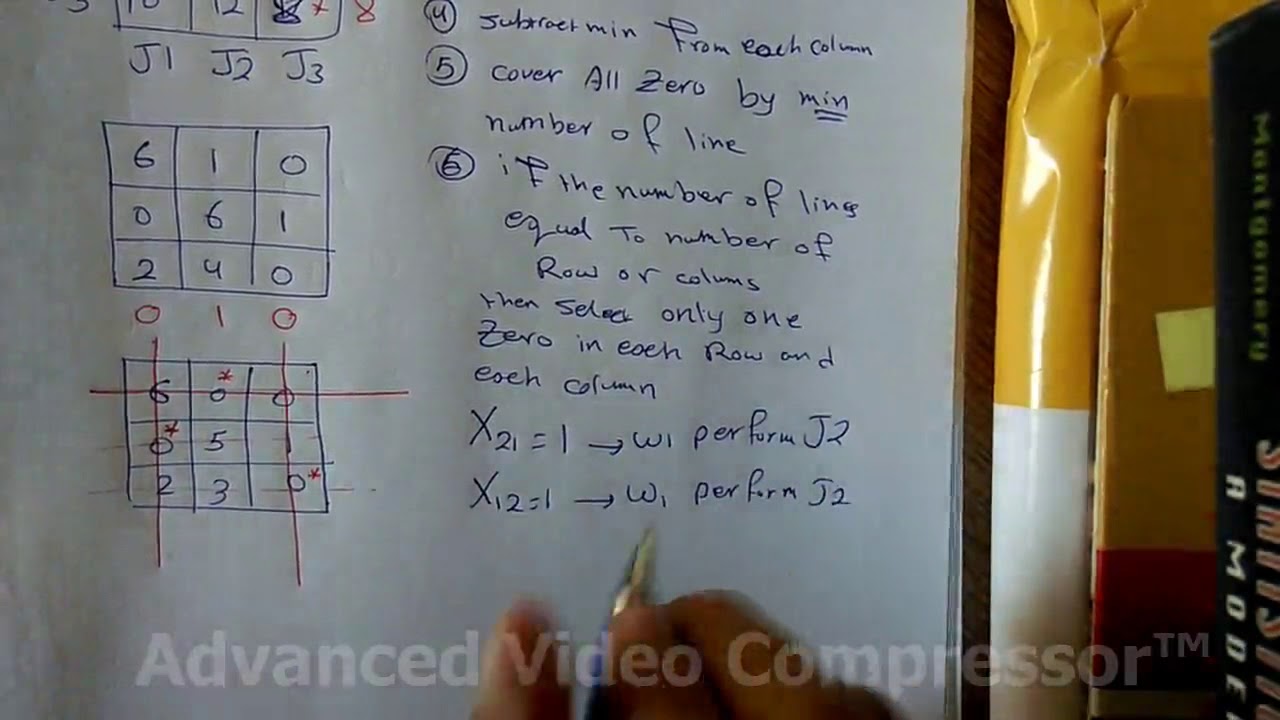 J1 J2 J3
6 1 0
0 6 1
2 4 0
0 1 0
6 0* 0
0* 5 1
2 3 0*
④ subtract min from each column
⑤ cover All Zero by min
number of line
⑥ if the number of lines
equal To number of
Row or colums
then select only one
Zero in each Row and
each column
X21 = 1 → w1 perform J2
X12=1 → w1 perform J2
Advanced Video Compressor™
Mantgomery
A MODE